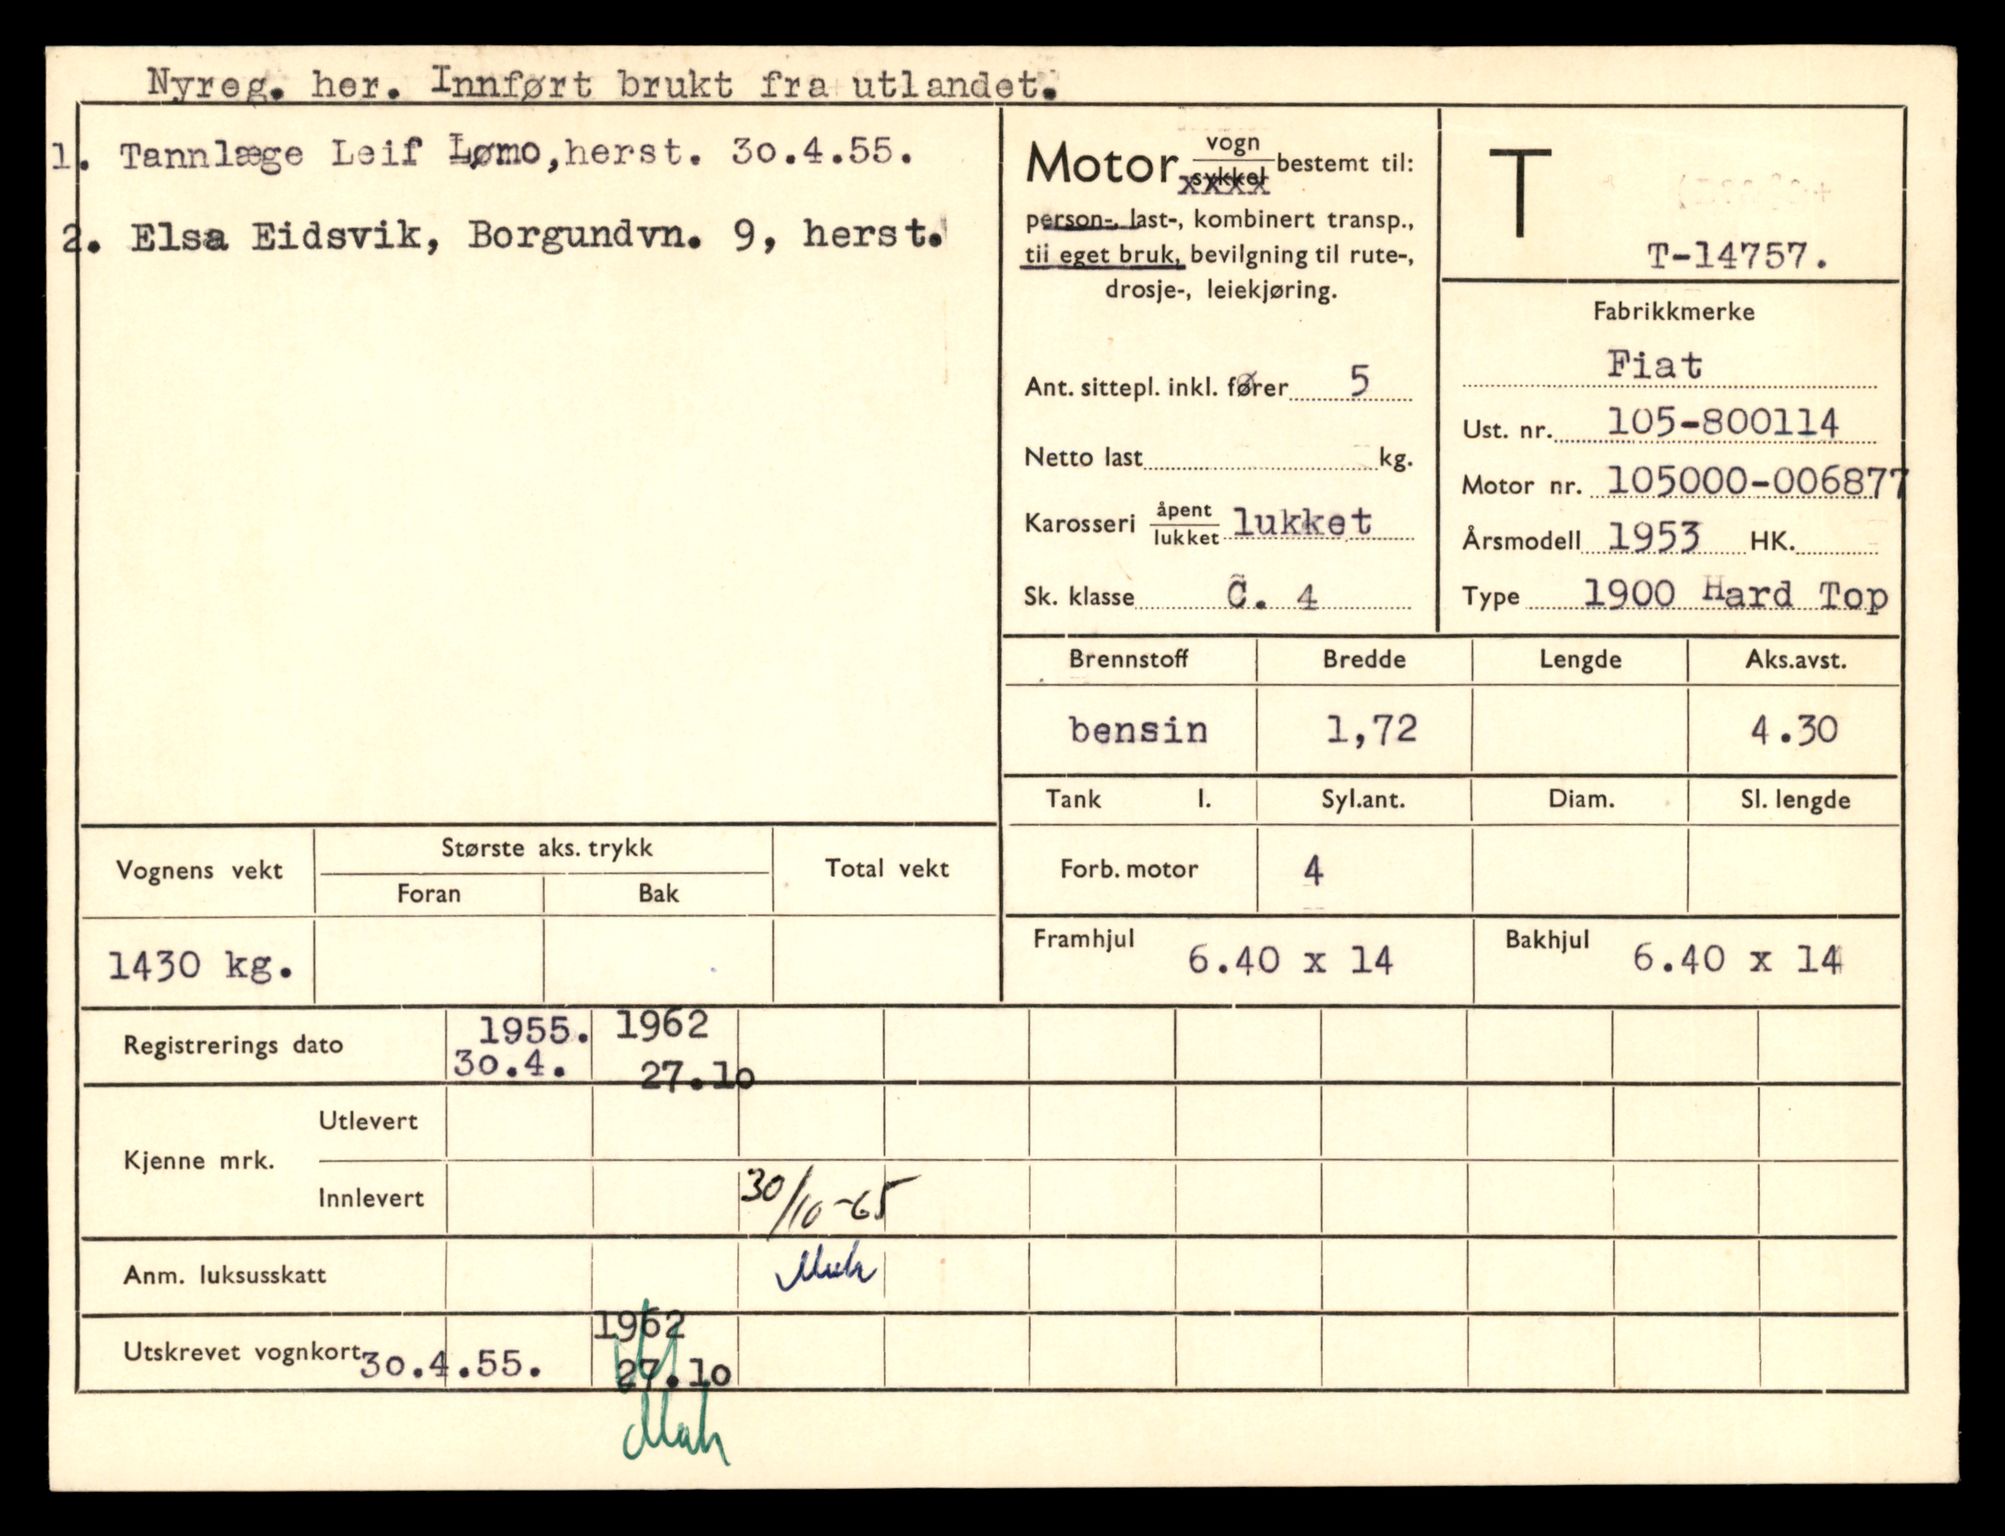 Nyreg. her. Innført brukt fra utlandet.
1. Tannlæge Leif Lømo, herst. 30.4.55.
2. Elsa Eidsvik, Borgundvn. 9, herst.
Motor vogn/sykkel bestemt til:
xxxx
person-, last-, kombinert transp.,
til eget bruk, bevilgning til rute-,
drosje-, leiekjøring.
Ant. sittepl. inkl. fører 5
Netto last kg.
Karosseri åpent/lukket lukket
Sk. klasse C. 4
T
T-14757.
Fabrikkmerke
Fiat
Ust. nr. 105-800114
Motor nr. 105000-006877
Årsmodell 1953 HK.
Type 1900 Hard Top
Brennstoff Bredde Lengde Aks.avst.
bensin 1,72 4.30
Tank l. Syl.ant. Diam. Sl. lengde
Forb. motor 4
Framhjul 6.40 x 14 Bakhjul 6.40 x 14
Vognens vekt Største aks. trykk Total vekt
Foran Bak
1430 kg.
Registrerings dato 1955. 1962
30.4. 27.10
Kjenne mrk. Utlevert
Innlevert 30/10-65
Anm. luksusskatt
1962
Utskrevet vognkort 30.4.55. 27.10